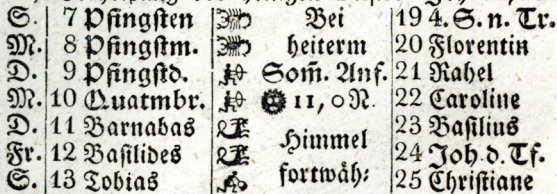 S. 7 Pfingsten Bei 19 4. S. n. Tr.
M. 8 Pfingstm. heiterm 20 Florentin
D. 9 Pfingstd. Som̄. Anf. 21 Rahel
M. 10 Quatmbr. 11, 0 N. 22 Caroline
D. 11 Barnabas Himmel 23 Basilius
Fr. 12 Basilides fortwäh⸗ 24 Joh. d. Tf.
S. 13 Tobias 25 Christiane